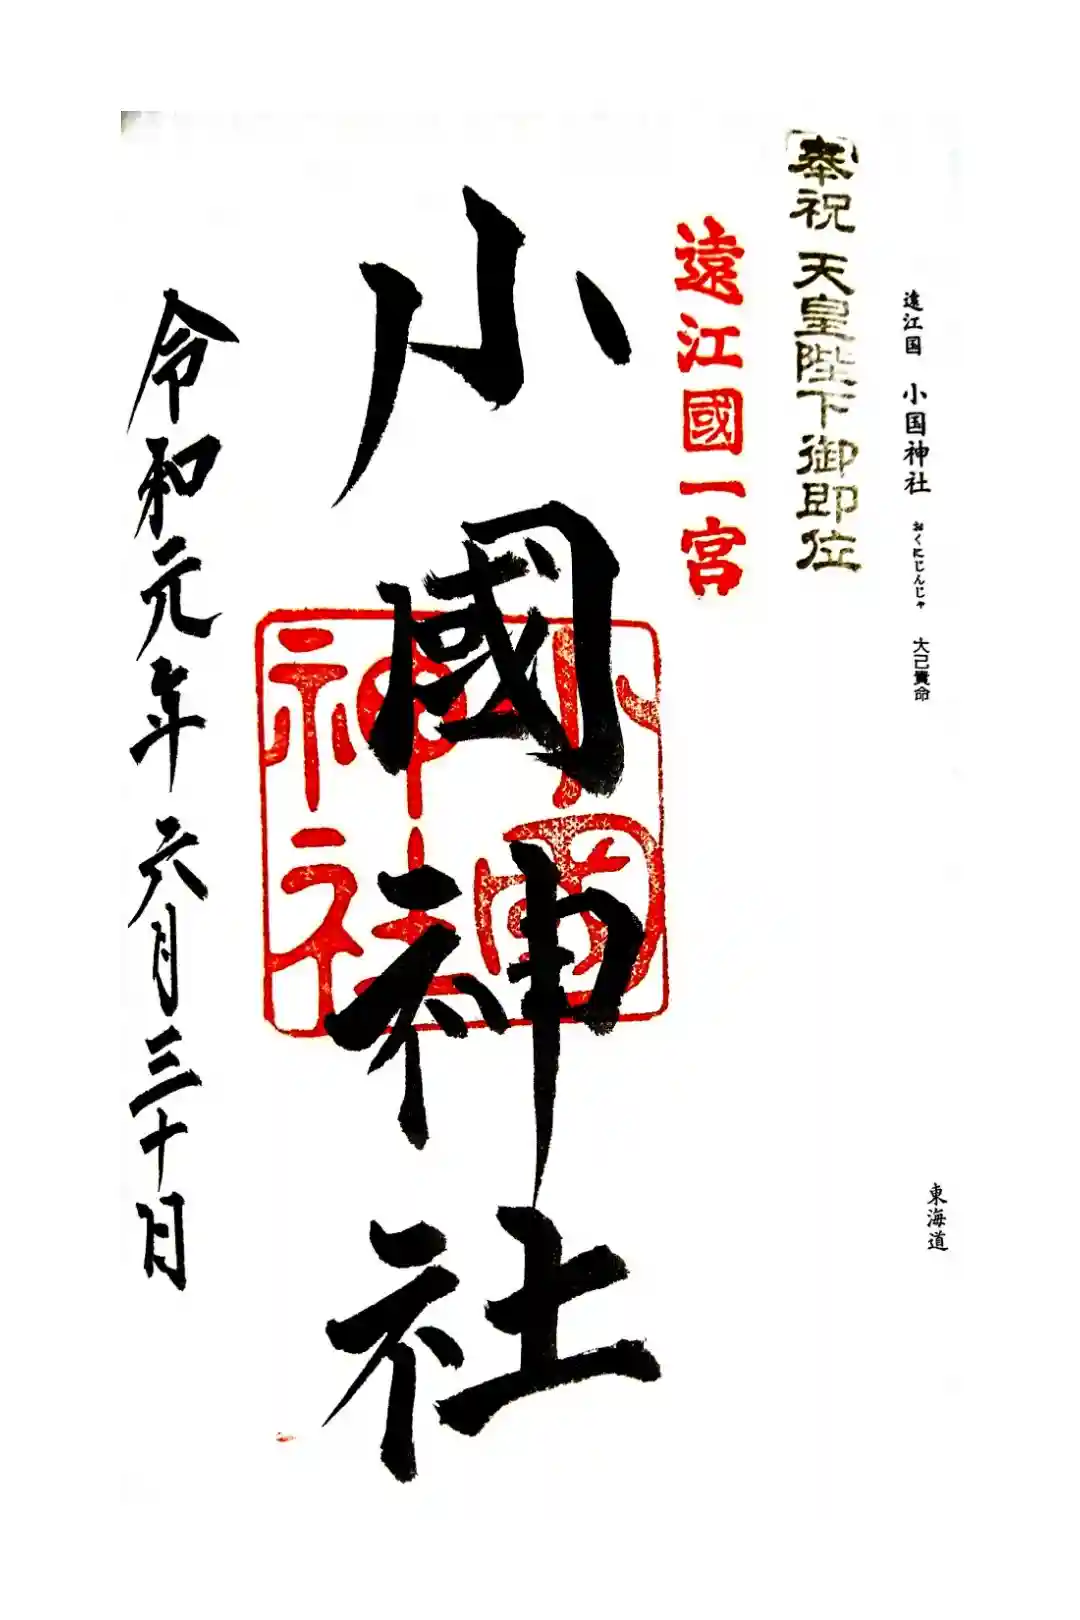 遠江国 小国神社 おくにじんじゃ 大己貴命
東海道
奉祝 天皇陛下御即位
遠江國一宮
小國神社
小國神社
令和元年六月三十日